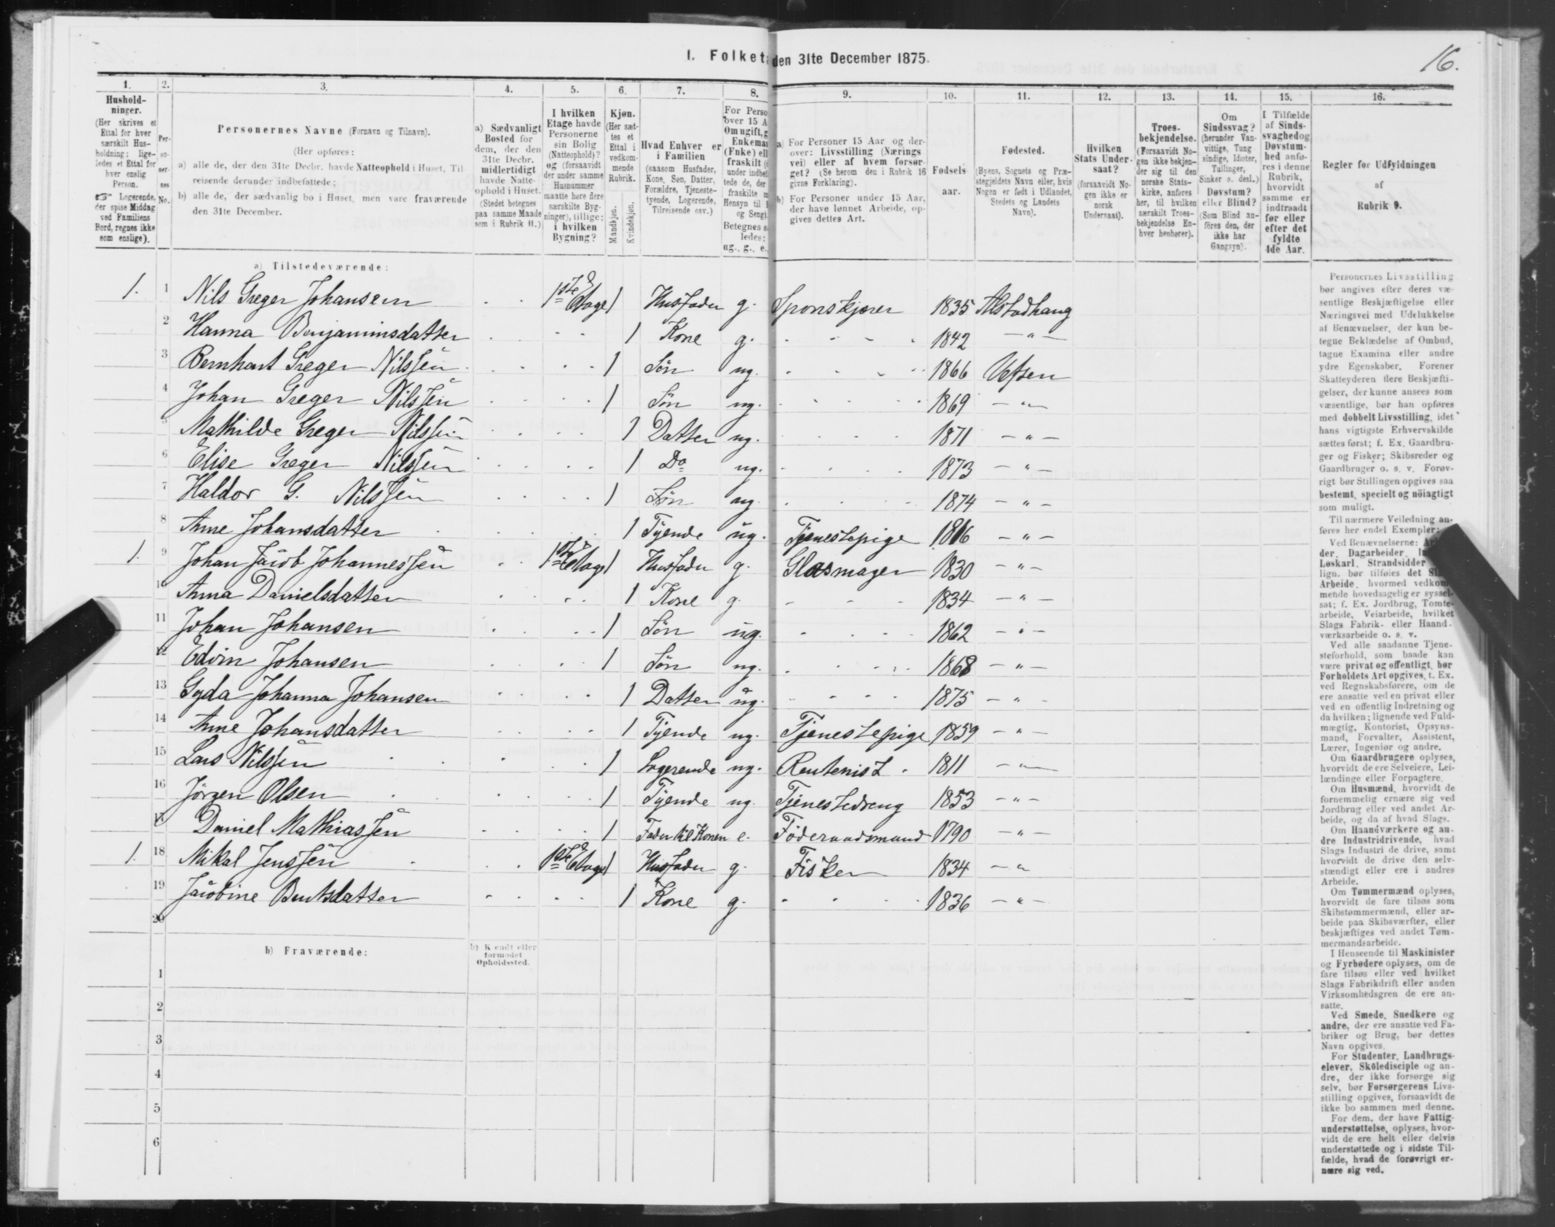 1. Folket den 31te December 1875.
16.
1. 2. 3. 4. 5. 6. 7. 8. 9. 10. 11. 12. 13. 14. 15. 16.
Hushold-
ninger.
(Her skrives et
Ettal for hver
særskilt Hus-
holdning; lige-
ledes et Ettal for
hver enslig
Person.
☞ Logerende,
der spise Middag
ved Familiens
Bord, regnes ikke
som enslige).
Per-
so-
ner-
nes
No.
Personernes Navne (Fornavn og Tilnavn).
(Her opføres:
a) alle de, der den 31te Decbr. havde Natteophold i Huset, Til
reisende derunder indbefattede;
b) alle de, der sædvanlig bo i Huset, men vare fraværende
den 31te December.
a) Sædvanligt
Bosted for
dem, der den
31te Decbr.
midlertidigt
havde Natte-
ophold i Huset.
(Stedet betegnes
paa samme Maade
som i Rubrik 11.)
I hvilken
Etage havde
Personerne
sin Bolig
(Natteophold)?
og (forsaavidt
der under samme
Husnummer
maatte høre flere
særskilte Byg-
ninger), tillige:
i hvilken
Bygning?
Kjøn.
(Her sæt-
tes et
Ettal i
vedkom-
mende
Rubrik.
Mandkjøn.
Kvindekjøn.
Hvad Enhver er
i Familien
(saasom Husfader,
Kone, Søn, Datter,
Forældre, Tjeneste-
tyende, Logerende,
Tilreisende osv.)
For Perso
over 15 A
Om ugift, g
Enkeman
(Fnke) ell
fraskilt (
under indbef
tede de, der
fraskilte m
Hensyn til B
og Seng).
Betegnes s
ledes:
ug., g., e.
a) For Personer 15 Aar og der-
over: Livsstilling (Nærings
vei) eller af hvem forsør-
get? (Se herom den i Rubrik 16
givne Forklaring).
b) For Personer under 15 Aar,
der have lønnet Arbeide, op-
gives dettes Art.
Fødsels
aar.
Fødested.
(Byens, Sognets og Præ-
stegjeldets Navn eller, hvis
Nogen er født i Udlandet,
Stedets og Landets
Navn).
Hvilken
Stats Under-
saat?
(forsaavidt No-
gen ikke er
norsk
Undersaat).
Troes-
bekjendelse.
(Forsaavidt No-
gen ikke bekjen-
der sig til den
norske Stats-
kirke, anføres
her, til hvilken
særskilt Troes-
bekjendelse En-
hver henhører).
Om
Sindssvag?
(herunder Van-
vittige, Tung
sindige, Idioter,
Taillinger,
Sinker o. desl.)
Døvstum?
eller Blind?
(Som Blind an-
føres den, der
ikke har
Gangsyn).
I Tilfælde
af Sinds-
svaghed og
Døvstum-
hed anfø-
res i denne
Rubrik,
hvorvidt
samme er
indtraadt
før eller
efter det
fyldte
4de Aar.
Regler for Udfyldningen
af
Rubrik 9.
a) Tilstedeværende:
1. 1 Nils Greger Johansen 1ste Etage 1 Husfader g. Sponskjærer 1835 Alstadhaug
2 Hanna Benjaminsdatter 1 Kone g. 1842 — " —
3 Bernhart Greger Nilssen 1 Søn ug. 1866 Vefsen
4 Johan Greger Nilssen 1 Søn ug. 1869 — " —
5 Mathilde Greger Nilssen 1 Datter ug. 1871 — " —
6 Elise Greger Nilssen 1 Do ug. 1873 — " —
7 Haldor G. Nilssen 1 Søn ug. 1874 — " —
8 Anne Johansdatter 1 Tyende ug. Tjenestepige 18 6 — " —
1. 9 Johan Jacob Johannessen 1ste Etage 1 Husfader g. Glasmager 1830 — " —
10 Anna Danielsdatter 1 Kone g. 1834 — " —
11 Johan Johansen 1 Søn ug. 1862 — " —
12 Edvin Johansen 1 Søn ug. 1868 — " —
13 Gyda Johanna Johansen 1 Datter ug. 1875 — "
14 Anne Johansdatter 1 Tyende ug. Tjenestepige 1859 — " —
15 Lars Nilssen 1 Logerende ug. Rentenist 1811 — " —
16 Jörgen Olsen 1 Tyende ug. Tjenestedreng 1853 — " —
17 Daniel Mathiassen 1 Fader til Konen e. Föderaadsmand 1790 — " —
1. 18 Mikal Jenssen 1ste Etage 1 Husfader g. Fisker 1834 — "
19 Jacobine Bentsdatter 1 Kone g. 1836 — " —
20
b) Fraværende:
b) Kjendt eller
formodet
Opholdssted.
1
2
3
4
5
6
Personernes Livsstilling
bør angives efter deres væ-
sentlige Beskjæftigelse eller
Næringsvei med Udelukkelse
af Benævnelser, der kun be-
tegne Beklædelse af Ombud,
tagne Examina eller andre
ydre Egenskaber. Forener
Skatteyderen flere Beskjæfti-
gelser, der kunne ansees som
væsentlige, bør han opføres
med dobbelt Livsstilling, idet
hans vigtigste Erhvervskilde
sættes først; f. Ex. Gaardbru-
ger og Fisker; Skibsreder og
Gaardbruger o. s. v. Forøv-
rigt bør Stillingen opgives saa
bestemt, specielt og nöiagtigt
som muligt.
Til nærmere Veiledning an-
føres her endel Exempler:
Ved Benævnelserne:
der, Dagarbeider,
Løskarl, Strandsidder
lign. bør tilføies det
Arbeide, hvormed vedkom-
mende hovedsagelig er syssel-
sat; f. Ex. Jordbrug, Tomte-
arbeide, Veiarbeide, hvilket
Slags Fabrik- eller Haand-
værksarbeide o. s. v.
Ved alle saadanne Tjene-
steforhold, som baade kan
være privat og offentligt, bør
Forholdets Art opgives, t. Ex.
ved Regnskabsførere, om de
ere ansatte ved en privat eller
ved en offentlig Indretning og
da hvilken; lignende ved Fuld-
mægtig, Kontorist, Opsyns-
mand, Forvalter, Assistent,
Lærer, Ingeniør og andre.
Om Gaardbrugere oplyses,
hvorvidt de ere Selveiere, Lei-
lændinge eller Forpagtere.
Om Husmænd, hvorvidt de
fornemmelig ernære sig ved
Jordbrug eller ved andet Ar-
beide, og da af hvad Slags.
Om Haandværkere og an-
dre Industridrivende, hvad
Slags Industri de drive, samt
hvorvidt de drive den selv-
stændigt eller ere i andres
Arbeide.
Om Tømmermænd oplyses,
hvorvidt de fare tilsøs som
Skibstømmermænd, eller ar-
beide paa Skibsværfter, eller
beskjæftiges ved andet Tøm-
mermandsarbeide.
I Henseende til Maskinister
og Fyrbødere oplyses, om de
fare tilsøs eller ved hvilket
Slags Fabrikdrift eller anden
Virksomhedsgren de ere an-
satte.
Ved Smede, Snedkere og
andre, der ere ansatte ved Fa-
briker og Brug, bør dettes
Navn opgives.
For Studenter, Landbrugs-
elever, Skoledisciple og an-
dre, der ikke forsørge sig
selv, bør Forsørgerens Livs-
stilling opgives, forsaavidt de
ikke bo sammen med denne.
For dem, der have Fattig-
understøttelse, oplyses, hvor-
vidt de ere helt eller delvis
understøttede og i sidste Til-
fælde, hvad de forøvrigt er-
nære sig ved.